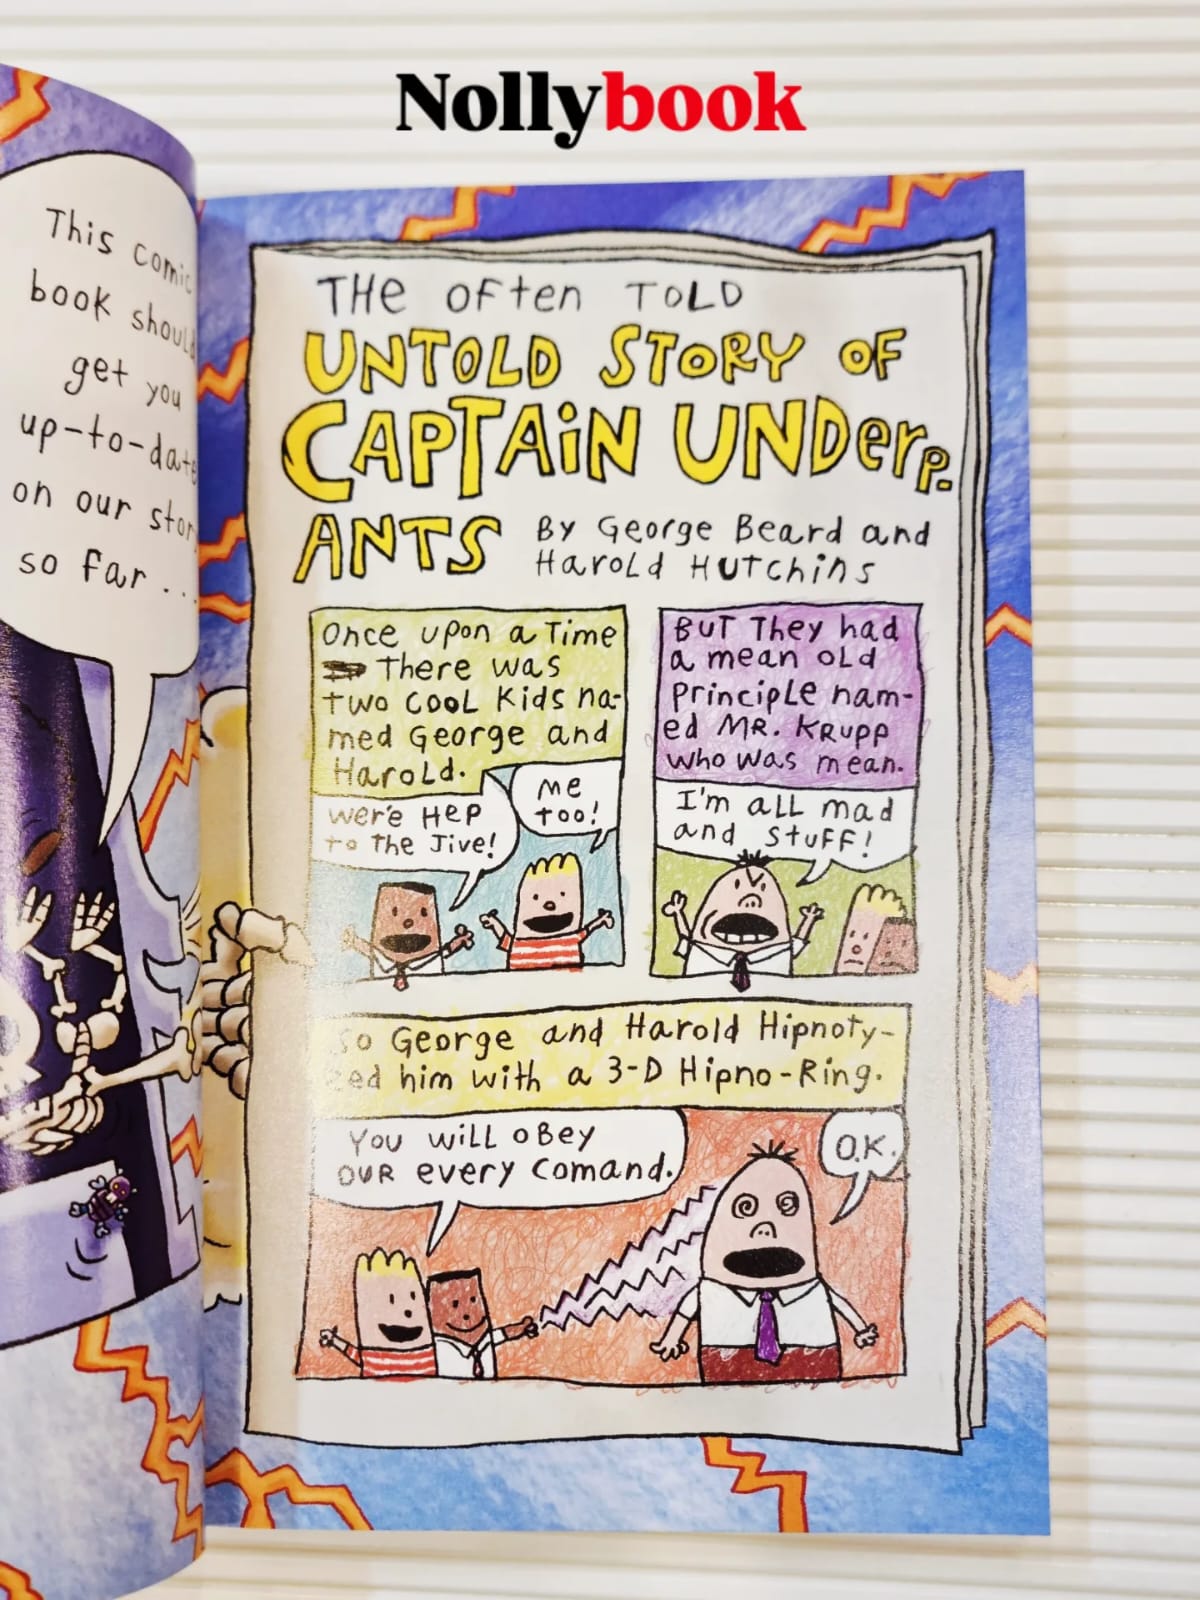 Nollybook
This comic
book should
get you
up-to-date
on our story
so far...
THe OFten TOLD
UNTOLD STORY OF
CAPTAiN UNDerp.
ANTS
By George Beard and
Harold Hutchins
Once upon a Time
There was
two cool Kids na-
med George and
Harold.
wer'e Hep
to the Jive!
me
too!
But They had
a mean old
Principle nam-
ed MR. KRUPP
who was mean.
I'm all mad
and stuff!
So George and Harold Hipnoty-
zed him with a 3-D Hipno-Ring.
You will obey
our every comand.
O.K.